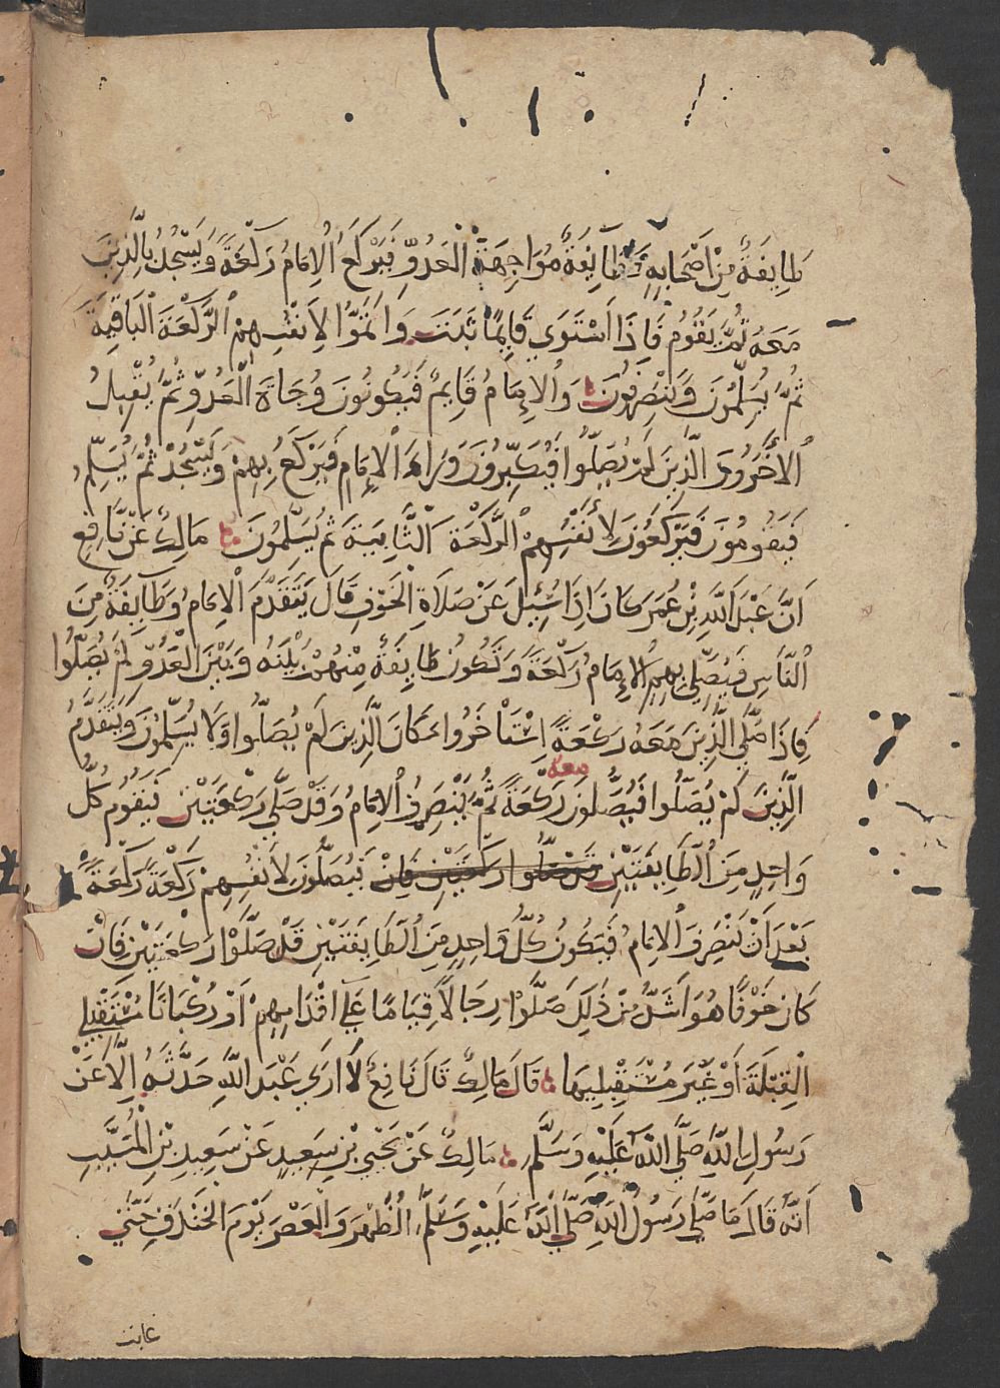 طَايِفَةٌ مِنْ اَصْحَابِهِ وَطَايِفَةٌ مُوَاجِهَةٌ الْعَدُوِّ فَيَرْكَعُ الْاِمَامُ رَكْعَةً وَيَسْجُدُ بِالَّذِينَ
مَعَهُ ثُمَّ يَقُومُ فَاِذَا اَسْتَوَي قَايِمًا ثَبَتَ وَاَتَمُّوا لِاَنْفُسِهِمْ الرَّكْعَةَ الْبَاقِيَةَ
ثُمَّ يُسَلِّمُونَ وَيَنْصَرِفُونَ وَالْاِمَامُ قَايِمٌ فَيَكُونُونَ وُجَاهَ الْعَدُوِّ ثُمَّ يُقْبِلُ
الْاَخَرُونَ الَّذِينَ لَمْ يُصَلُّوا فَيُكَبِّرُونَ وَرَاءَ الْاِمَامِ فَيَرْكَعُ بِهِمْ وَيَسْجُدْ ثُمَّ يُسَلِّمُ
فَيَقُومُونَ فَيَرْكَعُونَ لِاَنْفُسِهِمْ الرَّكْعَةَ الثَّانِيَةَ ثُمَّ يُسَلِّمُونَ مَالِكٌ عَنْ نَافِعٍ
اَنَّ عَبْدَ اللَّهِ بْنِ عُمَرَ كَانَ اِذَا سُئِلَ عَنْ صَلَاةِ الْخَوْفِ قَالَ يَتَقَدَّمَ الْاِمَامُ وَطَايِفَةٌ مِنَ
النَّاسِ فَيُصَلِّي بِهِمُ الْاِمَامُ رَكْعَةً وَتَكُونُ طَايِفَةٌ مِنْهُمْ بَيْنَهُ وَبَيْنَ الْعَدُوِّ لَمْ يُصَلُّوا
فَاِذَا صَلَّي الَّذِينَ مَعَهُ رَكْعَةً اِسْتَاْخَرُوا مَكَانَ الَّذِينَ لَمْ يُصَلُّوا وَلَا يُسَلِّمُونَ وَيَتَقَدَّمُ
الَّذِينَ لَمْ يُصَلُّوا فَيُصَلُّونَ معه رَكْعَةً ثُمَّ يَنْصَرِفُ الْاِمَامُ وَقَدْ صَلَّي رَكْعَتَيْنِ فَيَقُومُ كُلُّ
وَاحِدٍ مِنَ الطَّايِفَتَيْنِ قد صَلُّوا رَكْعَتَيْنِ فَاِنْ فَيُصَلُّونَ لِاَنْفُسِهِمْ رَكْعَةً رَكْعَةً
بَعْدَ اَنْ يَنْصَرِفَ الْاِمَامُ فَيَكُونُ كُلُّ وَاحِدٍ مِنَ الطَّايِفَتَيْنِ قَدْ صَلَّوْا رَكْعَتَيْنِ فَاِنْ
كَانَ خَوْفًا هُوَ اَشَدَّ مِنْ ذَلِكَ صَلَّوْا رِجَالًا قِيَامًا عَلَي اَقْدَامِهِمْ اَوْ رُكْبَانًا مُسْتَقْبِلِي
الْقِبْلَةَ اَوْ غَيْرَ مُسْتَقْبِلِيهَا قَالَ مَالِكٌ قَالَ نَافِعٌ لَا اَرَي عَبْدَ اللَّهِ حَدَّثَهُ اِلَّا عَنْ
رَسُولِ اللَّهِ صَلَّي اللَّهُ عَلَيْهِ وَسَلَّمَ مَالِكٌ عَنْ يَحْيَي بْنِ سَعِيدٍ عَنْ سَعِيدِ بْنِ الْمُسَيَّبِ
اَنَّهُ قَالَ مَا صَلَّي رَسُولُ اللَّهِ صَلَّي اللَّهُ عَلَيْهِ وَسَلَّمَ الظُّهْرَ وَالْعَصْرَ يَوْمَ الْخَنْدَقِ حَتَّي
غابت